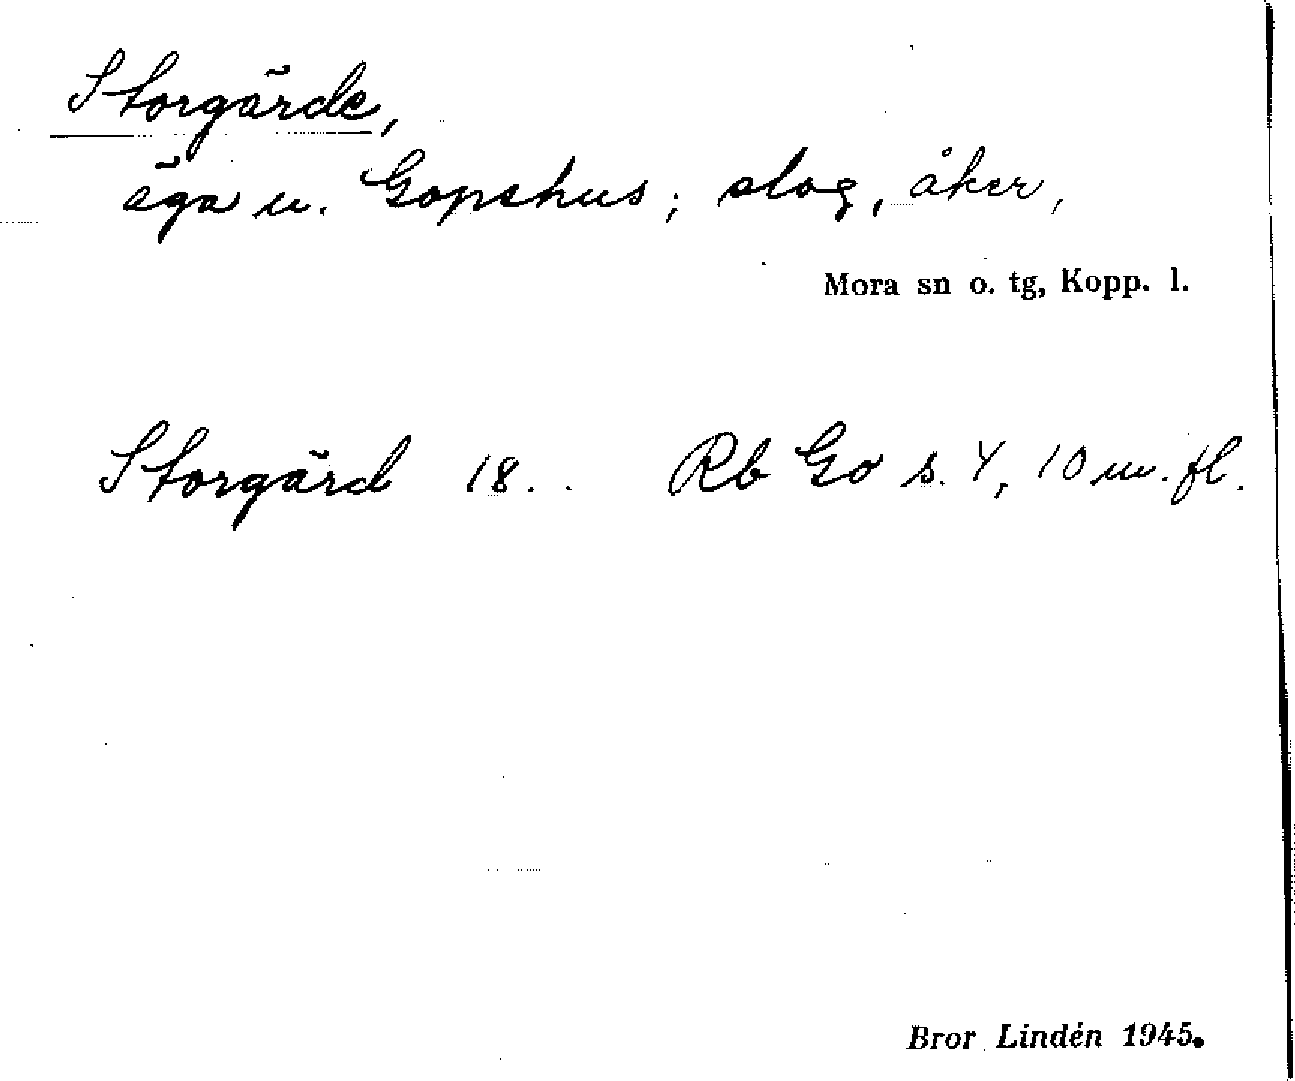 Storgärde,
äga u. Gopshus; slog, åker,
Mora sn o. tg, Kopp. l.
Storgärd 18. . Rb Go s. 4, 10 m. fl.
Bror Lindén 1945.